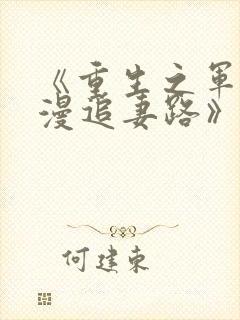 《重生之军
漫追妻路》
何建东